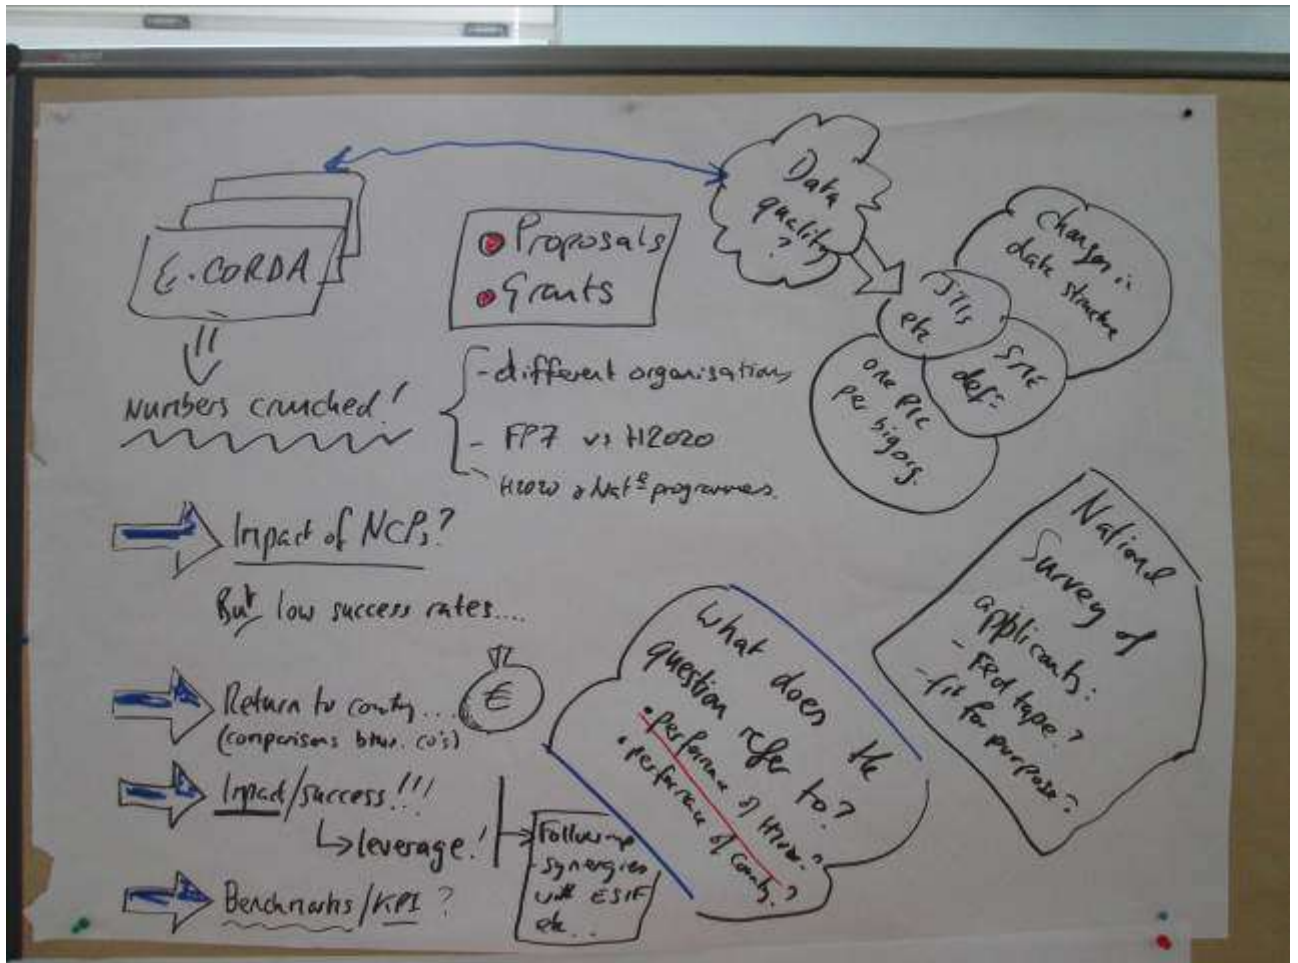 E-CORDA
Numbers crunched!
• Proposals
• Grants
- different organisations
- FP7 vs H2020
- H2020 & Natl programmes.
Data
quality
?
JTIs
etc
SME
def=
one PIC
per big org.
changes in
data structure
Impact of NCPs?
But low success rates....
Return to country...
(comparisons btwn. co's)
€
Impact/success!!!
↳ leverage!
Follow-up
synergies
with ESIF
etc...
Benchmarks/KPI ?
What does the
question refer to?
• performance of H2020?
• performance of country?
National
Survey of
applicants:
- red tape?
- fit for purpose?